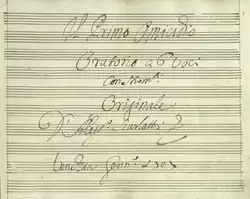 Il Primo Omicidio
Oratorio a 6 Voci
Con Strom.ti
Originale
D' Aless.o Scarlatti
Venezia Genn.o 1707